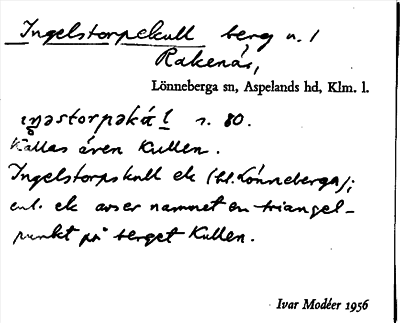 Ingelstorpskull berg n. /
Rakenäs,
Lönneberga sn, Aspelands hd, Klm. l.
s. 80.
Kallas även Kullen.
Ingelstorpskull ek (bl. Lönneberga);
enl. ek avser namnet en triangel-
punkt på berget Kullen.
Ivar Modéer 1956